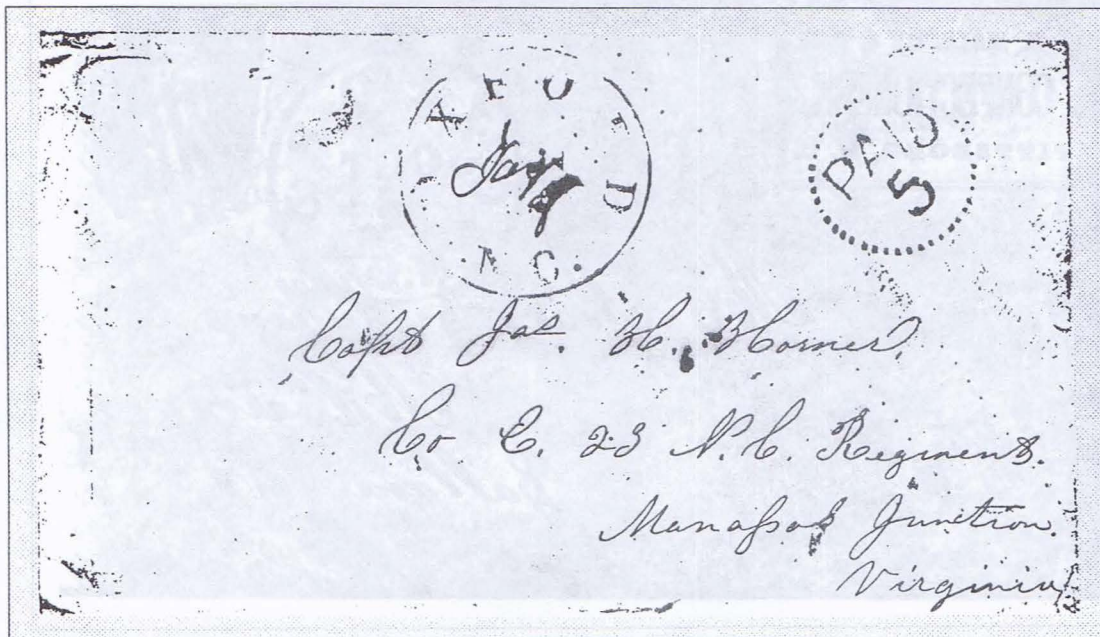 OXFORD
N.C.
PAID
5
Capt Jas. H. Horner.
Co E. 23 N.C. Regiment.
Manassas Junction
Virginia